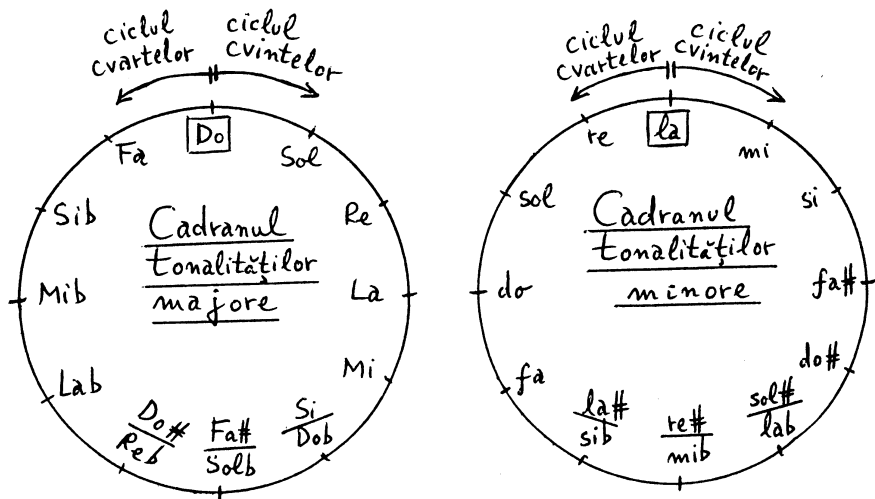 ciclul
cvartelor
ciclul
cvintelor
Do
Sol
Re
La
Mi
Si
Dob
Fa#
Solb
Do#
Reb
Lab
Mib
Sib
Fa
Cadranul
tonalităților
majore
ciclul
cvartelor
ciclul
cvintelor
la
mi
si
fa#
do#
sol#
lab
re#
mib
la#
sib
fa
do
sol
re
Cadranul
tonalităților
minore